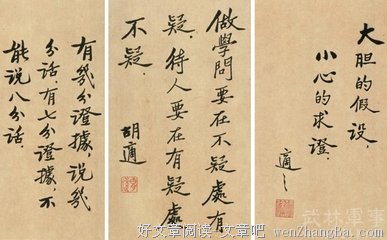 大胆的假设
小心的求證.
適之
做學問要在不疑處有
疑.待人要在有疑處
不疑.
胡適
有幾分證據，說幾
分話.有七分證據，不
能說八分話.
武林軍事
好文章阅读 文章吧 wenZhangBa.com